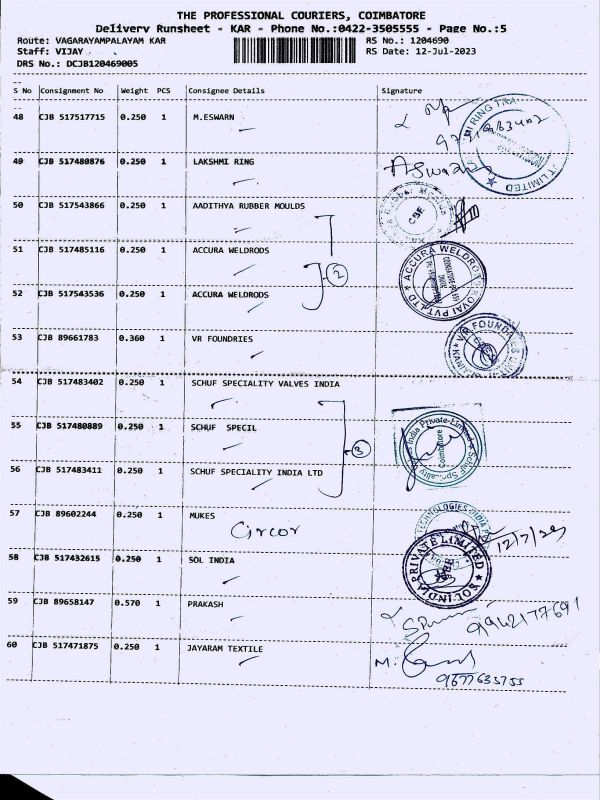 THE PROFESSIONAL COURIERS, COIMBATORE
Delivery Runsheet - KAR - Phone No.:0422-3505555 - Page No.:5
Route: VAGARAYAMPALAYAM KAR RS No.: 1204690
Staff: VIJAY RS Date: 12-Jul-2023
DRS No.: DCJB120469005
S No Consignment No Weight PCS Consignee Details Signature
48 CJB 517517715 0.250 1 M.ESWARN
49 CJB 517480876 0.250 1 LAKSHMI RING
Aswa
50 CJB 517543866 0.250 1 AADITHYA RUBBER MOULDS
CBE
51 CJB 517485116 0.250 1 ACCURA WELDRODS
2
ACCURA WELDRODS KOVAI PVT LTD
52 CJB 517543536 0.250 1 ACCURA WELDRODS
53 CJB 89661783 0.360 1 VR FOUNDRIES
VR FOUNDRIES
54 CJB 517483402 0.250 1 SCHUF SPECIALITY VALVES INDIA
55 CJB 517480889 0.250 1 SCHUF SPECIL
3
India Private Limited Schuf Speciality
Coimbatore
56 CJB 517483411 0.250 1 SCHUF SPECIALITY INDIA LTD
57 CJB 89602244 0.250 1 MUKES
Circor
12/7/23
58 CJB 517432615 0.250 1 SOL INDIA
SOL INDIA PRIVATE LIMITED
59 CJB 89658147 0.570 1 PRAKASH
9942177691
60 CJB 517471875 0.250 1 JAYARAM TEXTILE
M.
9677635755